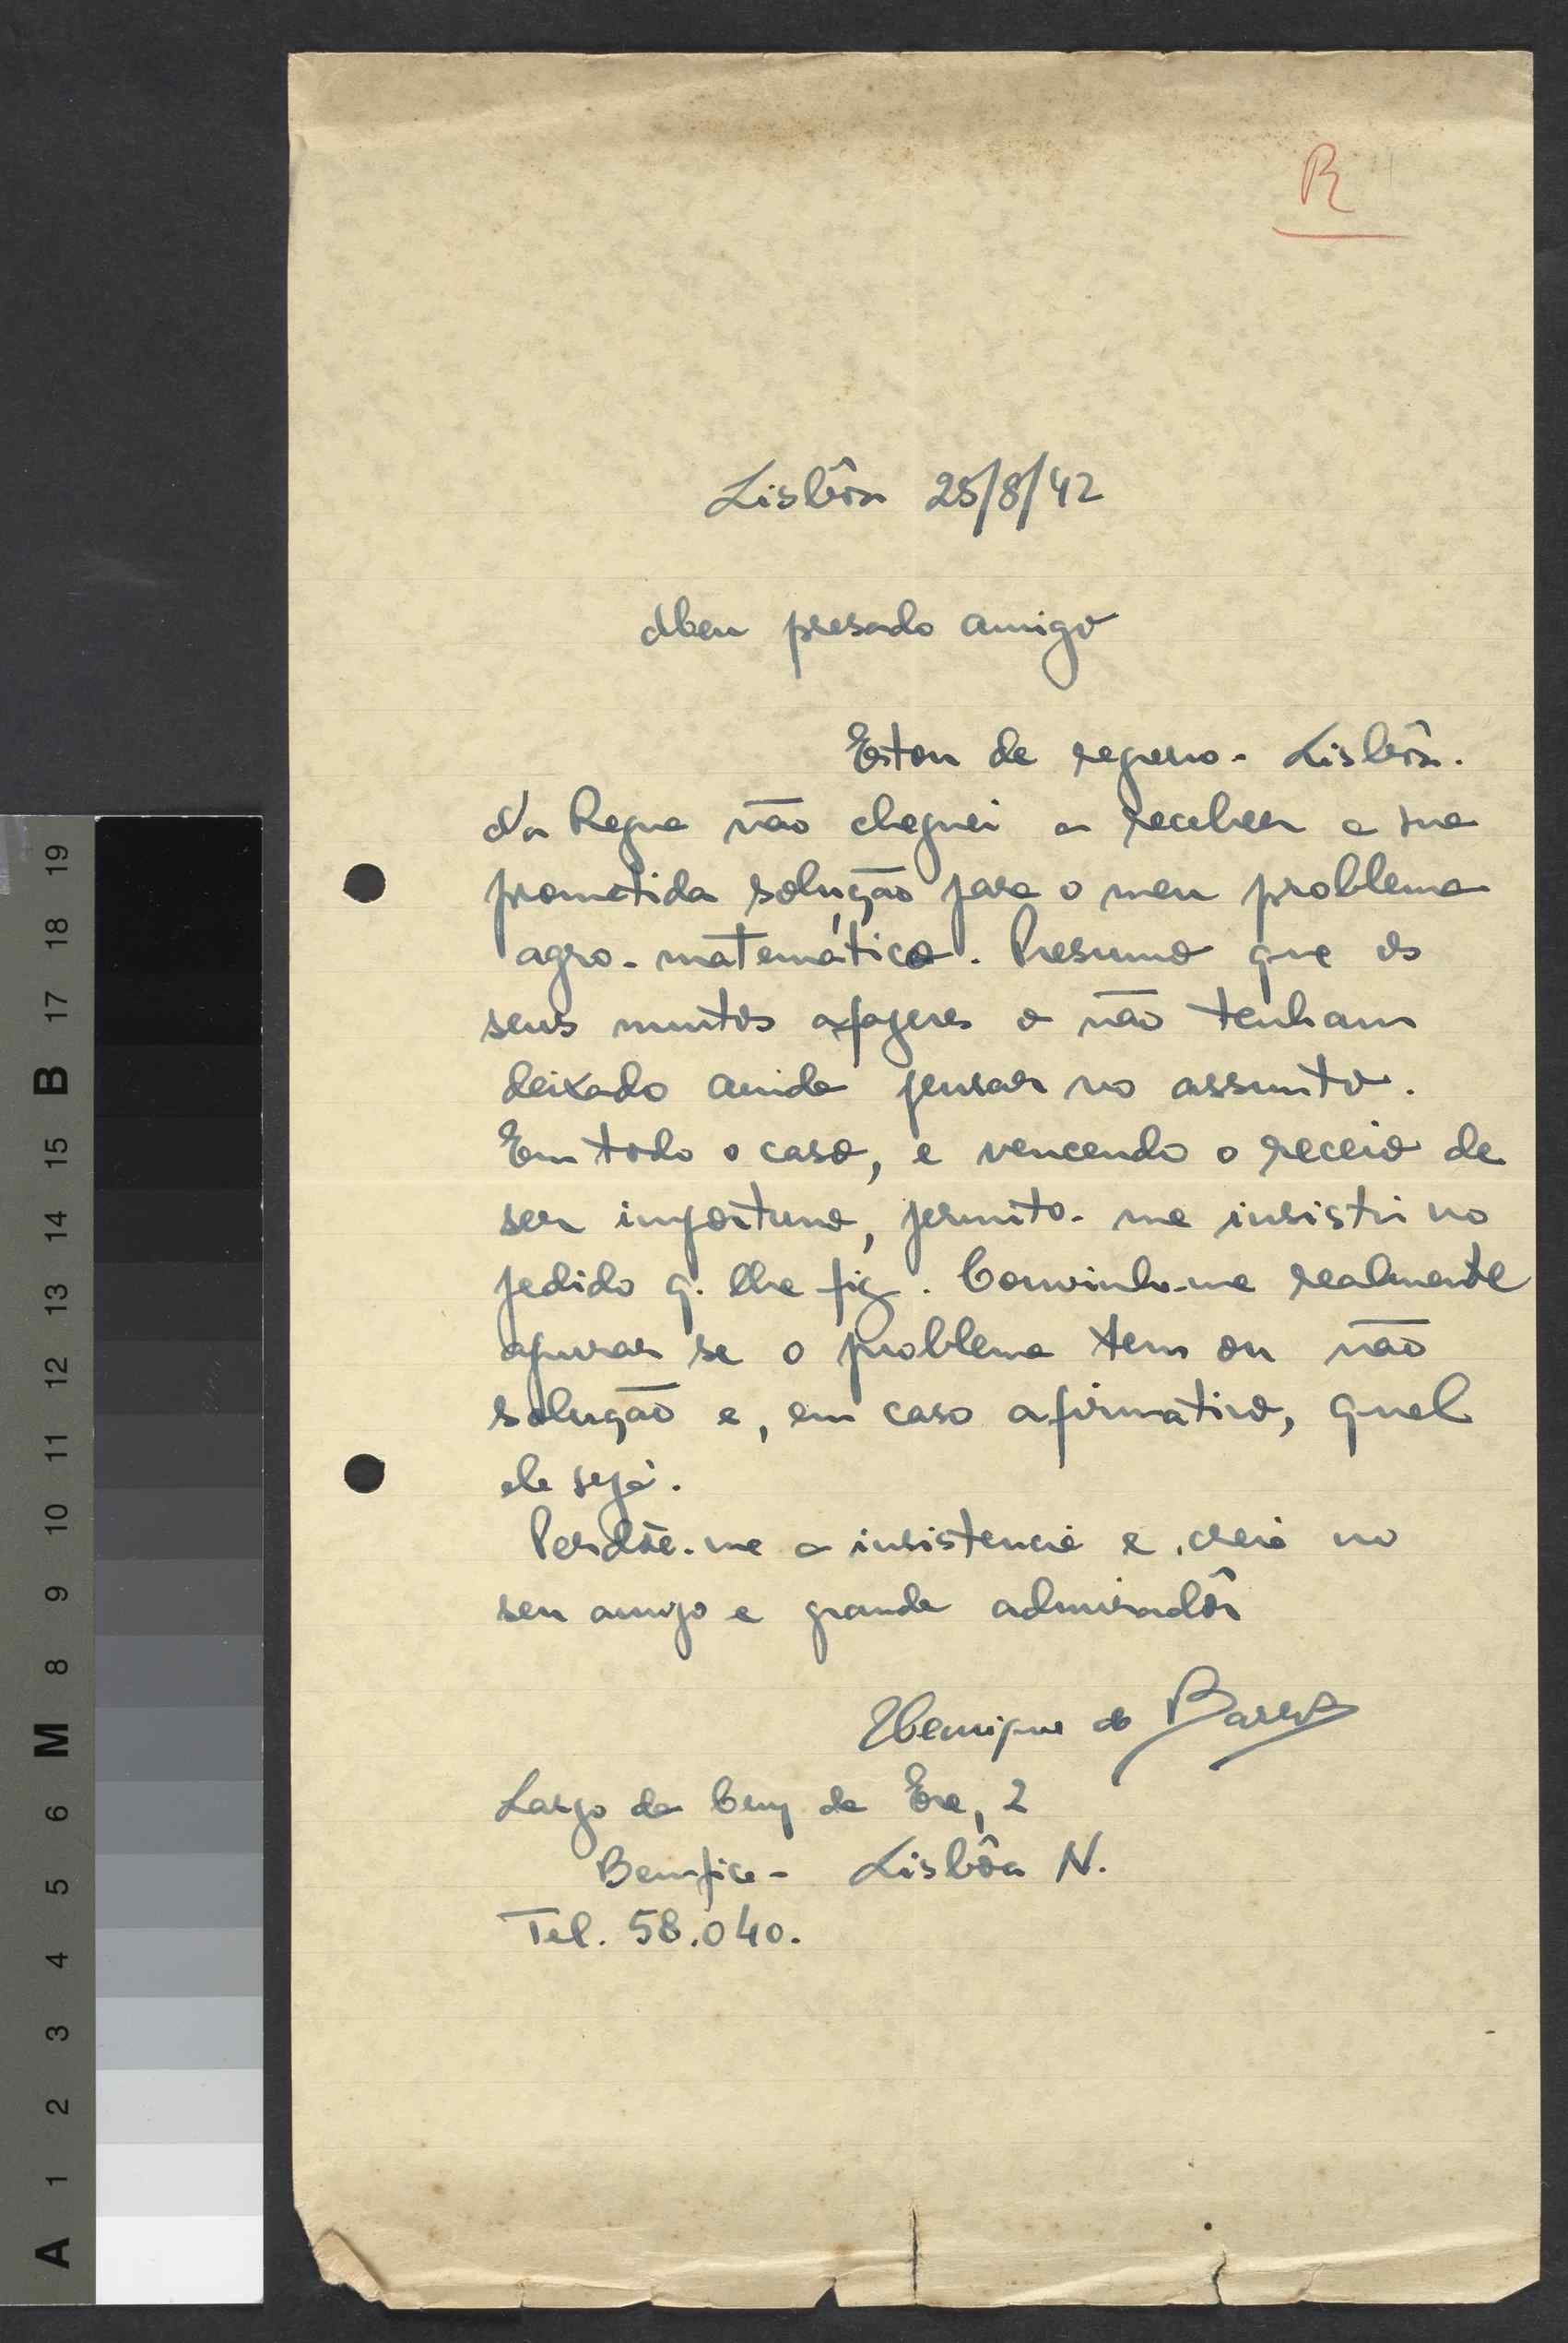 R
Lisbôa 25/8/42
Meu presado amigo
Estou de regresso a Lisbôa.
Na Regua não cheguei a receber a sua
prometida solução para o meu problema
agro-matemático. Presumo que os
seus muitos afazeres o não tenham
deixado ainda pensar no assunto.
Em todo o caso, e vencendo o receio de
ser importuno, permito-me insistir no
pedido q. lhe fiz. Convinha-me realmente
apurar se o problema tem ou não
solução e, em caso afirmativo, qual
ela seja.
Perdôe-me a insistencia e creia no
seu amigo e grande admiradôr
Henrique de Barros
Largo da Cruz da Era, 2
Bemfica - Lisbôa N.
Tel. 58.040.
A 1 2 3 4 5 6 M 8 9 10 11 12 13 14 15 B 17 18 19